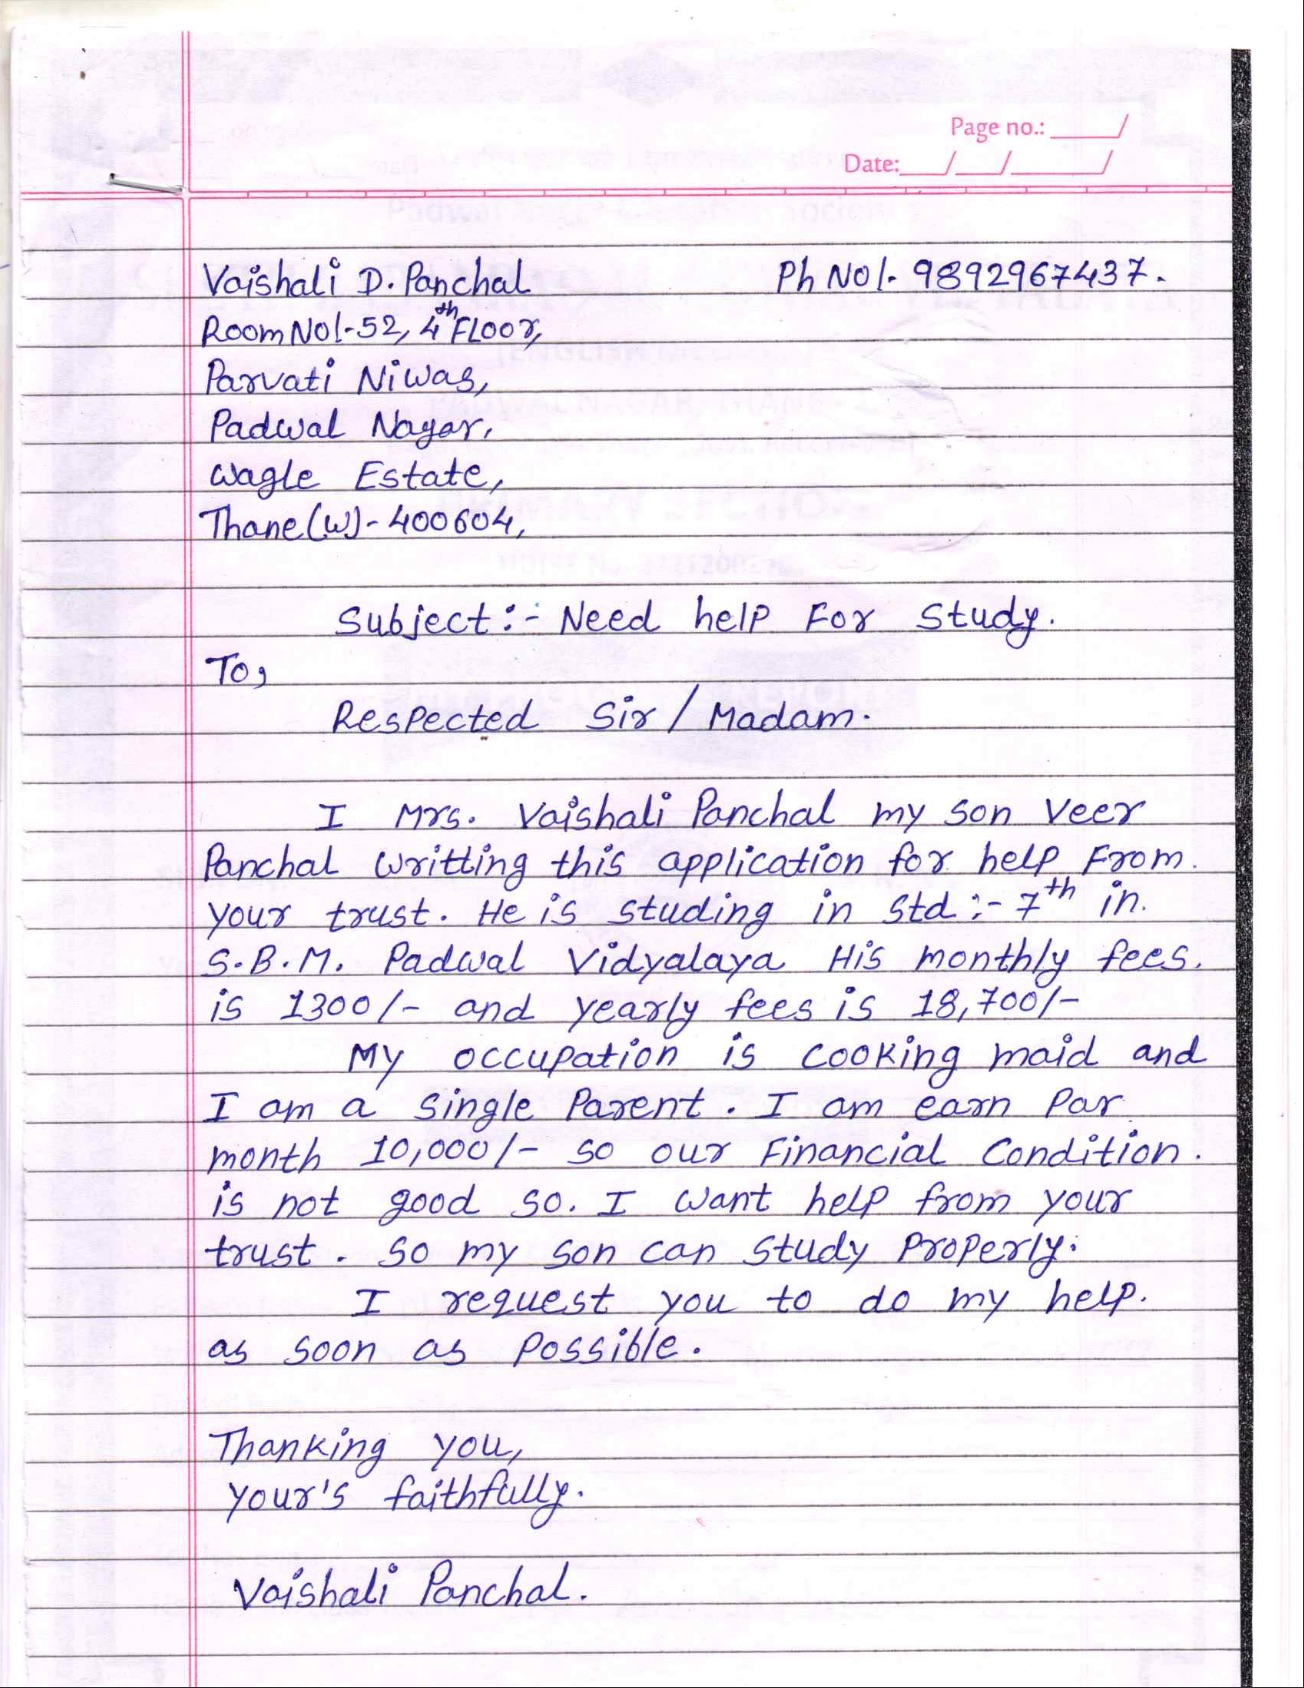 Page no.: _____/
Date: ___/___/_____/
Vaishali D. Panchal Ph No:- 9892967437.
Room No:-52, 4th Floor,
Parvati Niwas,
Padwal Nagar,
Wagle Estate,
Thane(W)-400604,
Subject:- Need help For Study.
To,
Respected Sir / Madam.
I Mrs. Vaishali Panchal my son Veer
Panchal writting this application for help From.
your trust. He is studing in Std :- 7th in.
S.B.M. Padwal Vidyalaya His monthly fees.
is 1300/- and yearly fees is 18,700/-
My occupation is cooking maid and
I am a single Parent. I am earn Par
month 10,000/- so our Financial Condition.
is not good so. I want help from your
trust. so my son can study Properly.
I request you to do my help.
as soon as Possible.
Thanking you,
your's faithfully.
Vaishali Panchal.